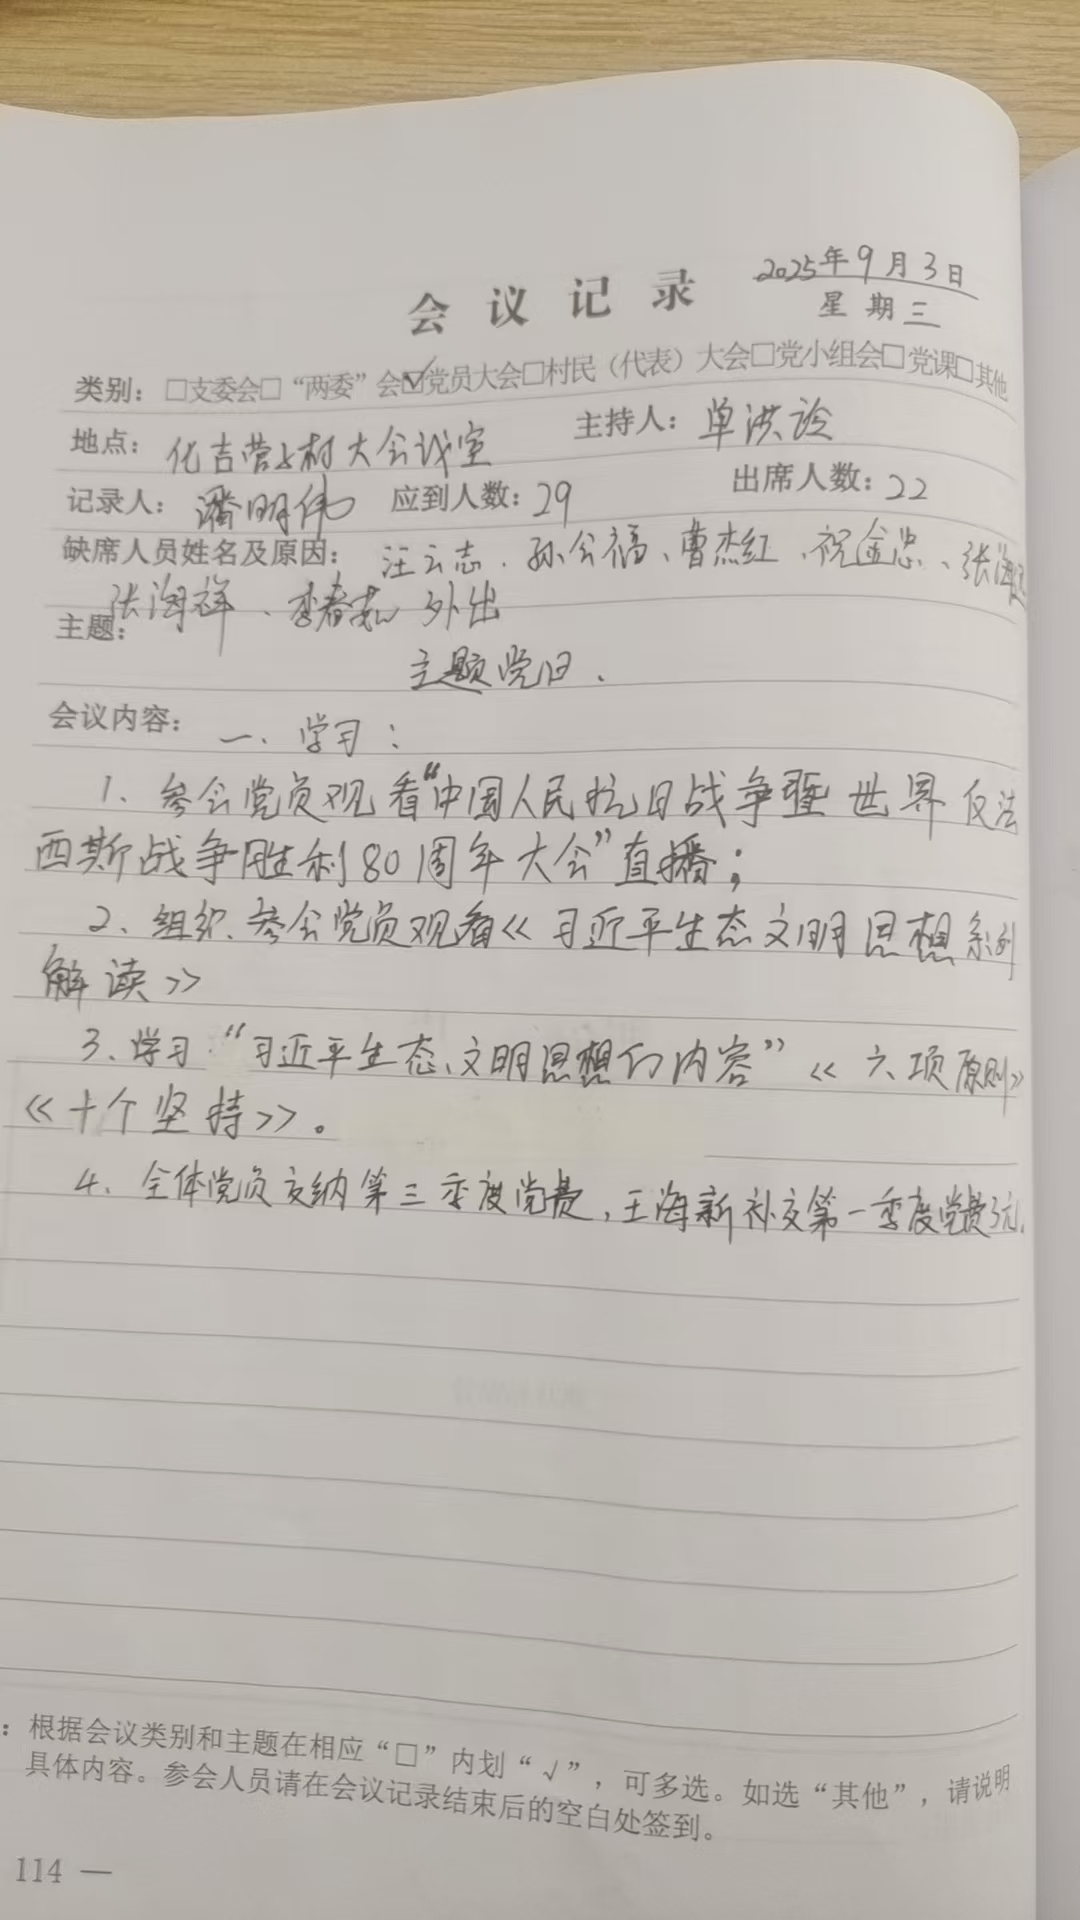 2025年9月3日
会议记录
星期三
类别：□支委会□“两委”会☑党员大会□村民（代表）大会□党小组会□党课□其他
地点：化吉营子村大会议室 主持人：单洪
记录人：潘明伟 应到人数：29 出席人数：22
缺席人员姓名及原因：汪云志、孙公福、曹杰红、祝金忠、张海
张海祥、李春 外出
主题：
主题党日.
会议内容：一、学习：
1、参会党员观看“中国人民抗日战争暨世界反法
西斯战争胜利80周年大会”直播；
2、组织参会党员观看《习近平生态文明思想系列
解读》
3、学习“习近平生态文明思想的内容”《六项原则》
《十个坚持》。
4、全体党员交纳第三季度党费，王海新补交第一季度党费3元.
：根据会议类别和主题在相应“□”内划“√”，可多选。如选“其他”，请说明
具体内容。参会人员请在会议记录结束后的空白处签到。
114 —